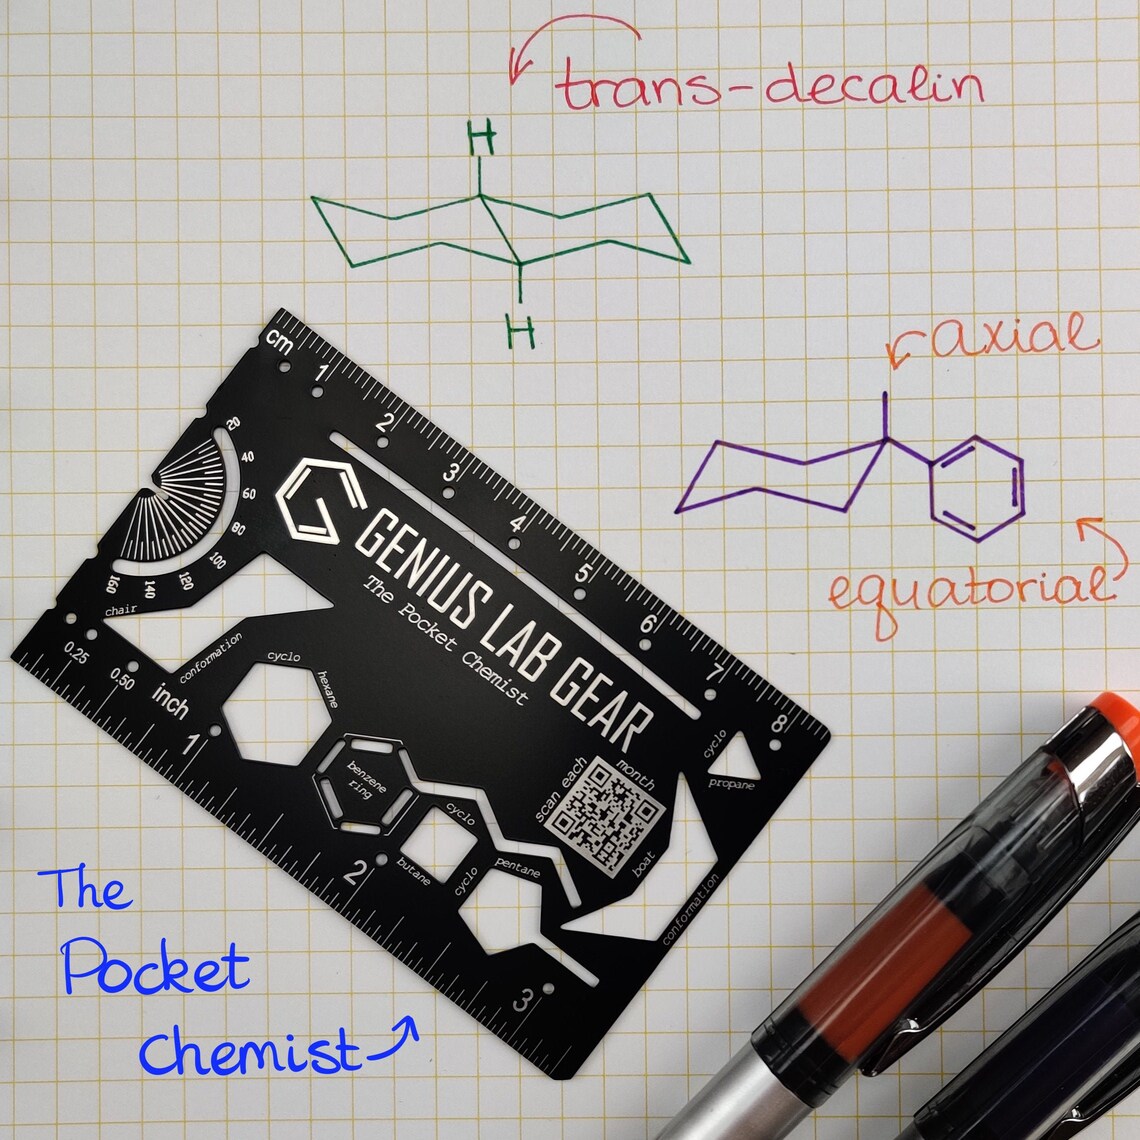 trans-decalin
H
H
axial
equatorial
cm
1
2
3
4
5
6
7
8
20
40
60
80
100
120
140
160
GENIUS LAB GEAR
The Pocket Chemist
chair
conformation
0.25
0.50
inch
1
2
3
cyclo
hexane
benzene
ring
cyclo
butane
cyclo
pentane
scan each
month
boat
conformation
cyclo
propane
The
Pocket
Chemist